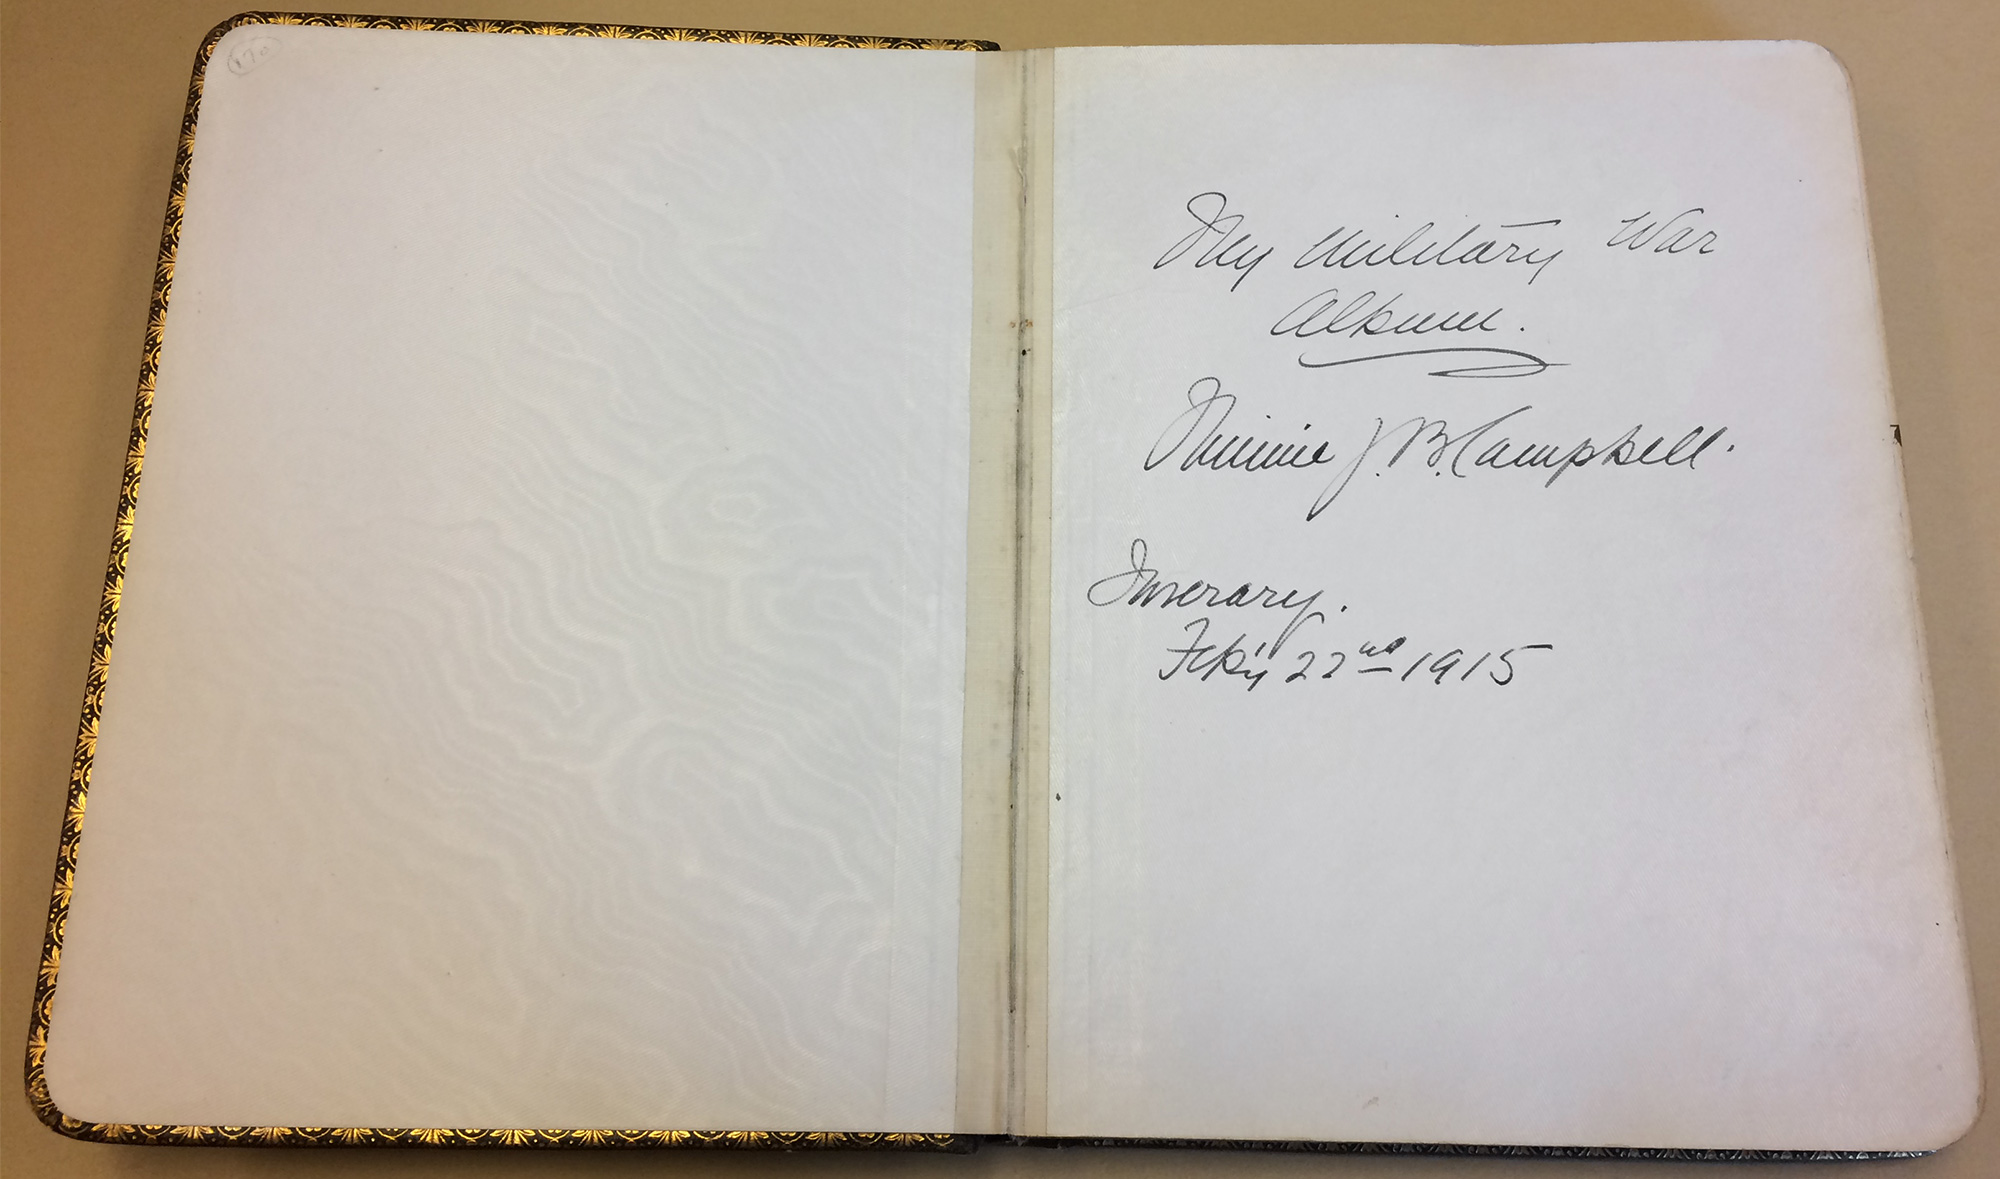 My Military War
Album.
Minnie J. B. Campbell.
Inverary.
Feb'y 22nd 1915